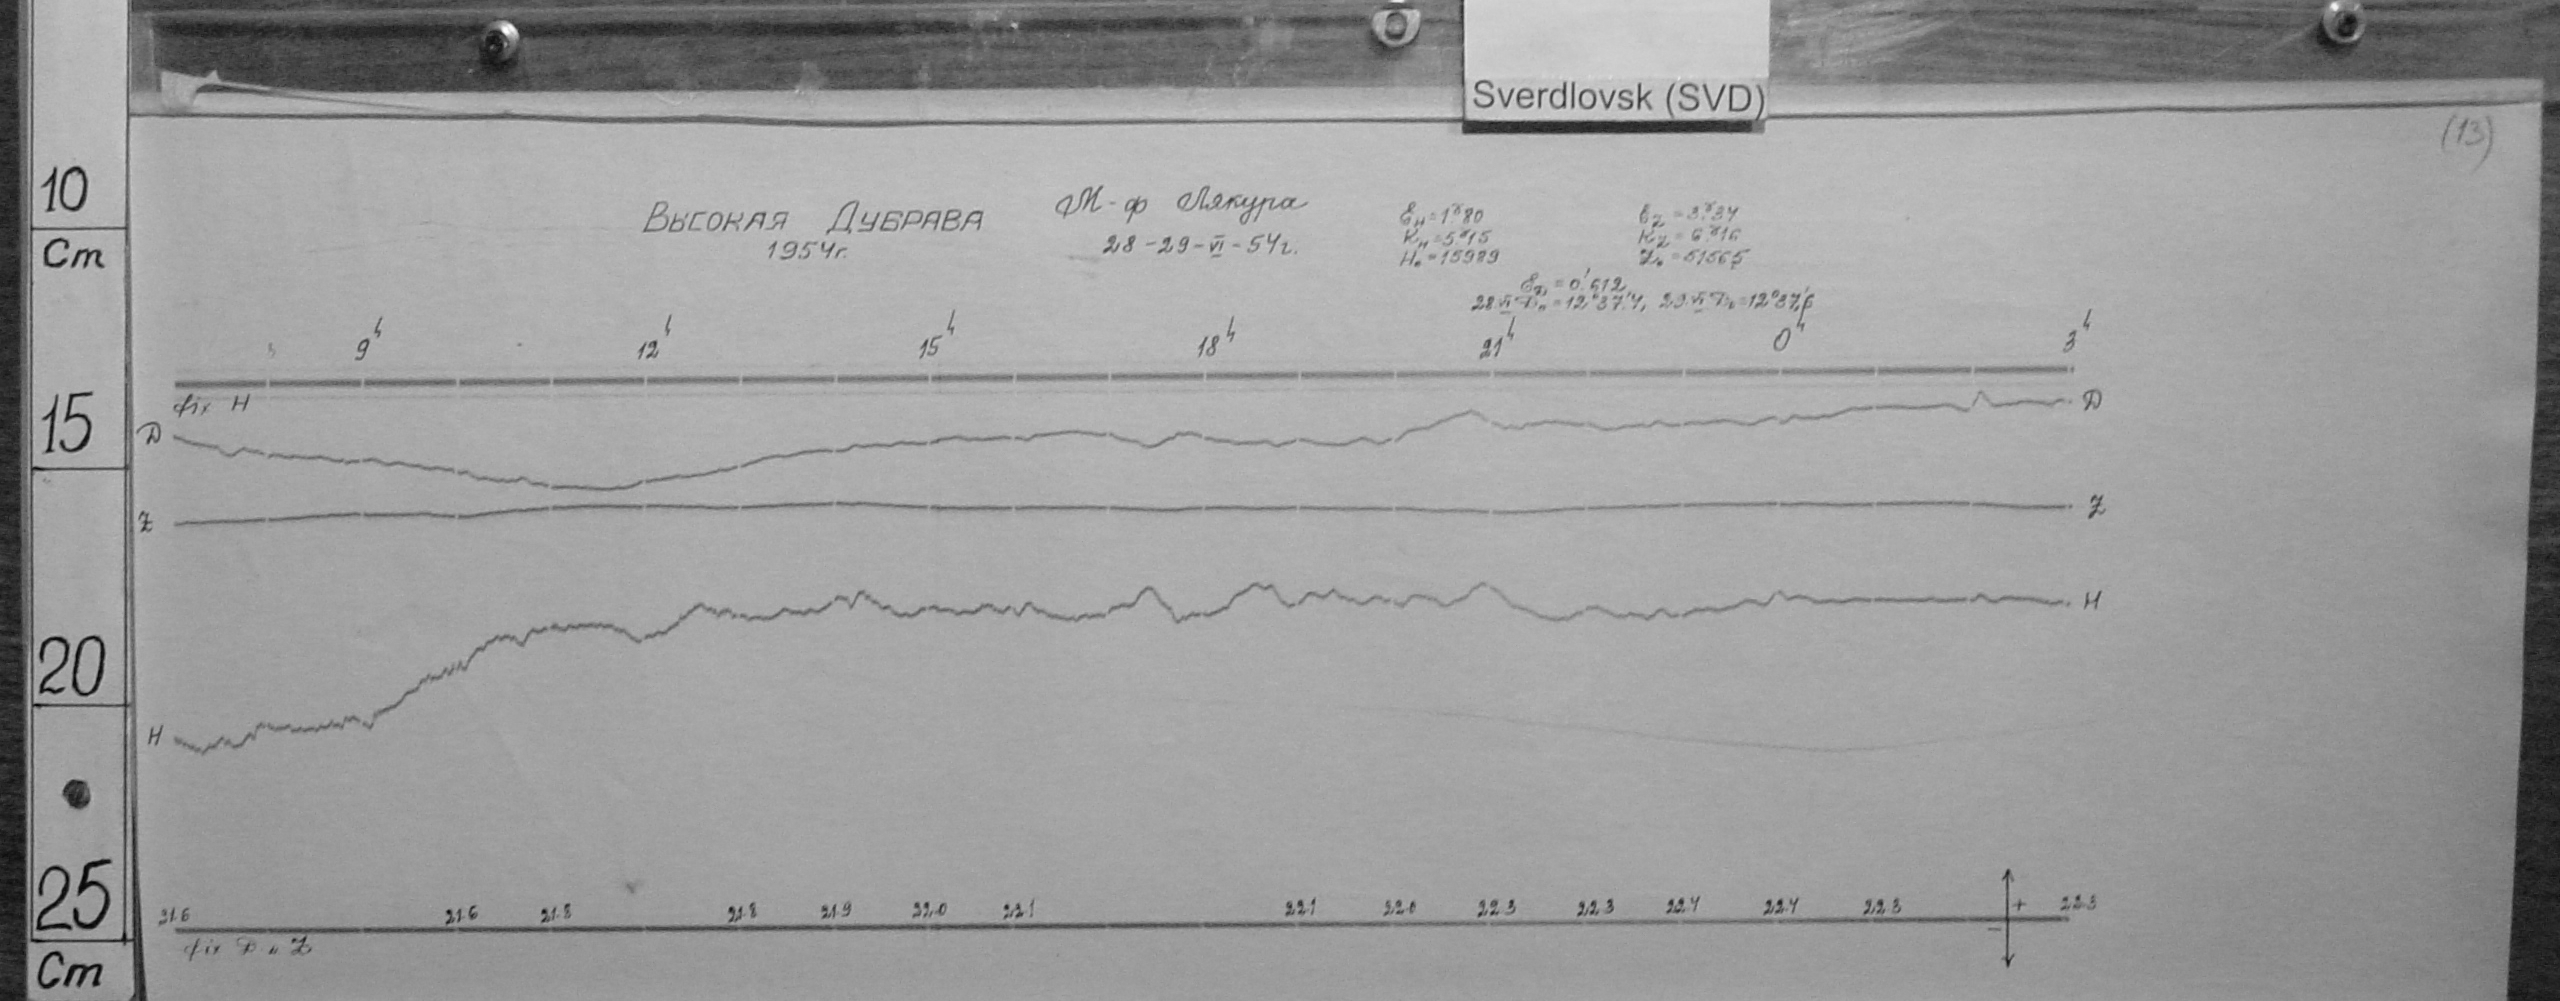 Sverdlovsk (SVD)
(13)
10
Cm
15
20
25
Cm
Высокая Дубрава
1954г.
М-ф Лякура
28-29-VI-54г.
Ԑн=1.ˠ80
Kн=5.ˠ15
H₀=15989
Ԑz=3.ˠ34
Kz=6.ˠ16
Z₀=51565
ԐD=0.'612
28.VI D₀=12°37.'4, 29.VI D₀=12°37.'6
9ʰ 12ʰ 15ʰ 18ʰ 21ʰ 0ʰ 3ʰ
fix H
D D
Z Z
H H
21.6 21.6 21.8 21.8 21.9 22.0 22.1 22.1 22.0 22.3 22.3 22.4 22.4 22.3 + 22.3
−
fix D и Z